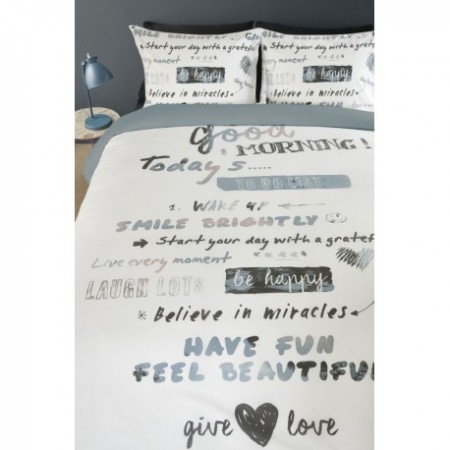 SMILE BRIGHTLY
→ Start your day with a grateful
every moment
be happy
Believe in miracles
SMILE BRIGHTLY
→ Start your day with a grateful
every moment
LAUGH LOTS
be happy
Believe in miracles
Good
MORNING!
Today's.....
TO DO LIST
1. WAKE UP
SMILE BRIGHTLY
→ Start your day with a gratef
Live every moment
LAUGH LOTS
be happy
* Believe in miracles
HAVE FUN
FEEL BEAUTIFUL
give ♥ love